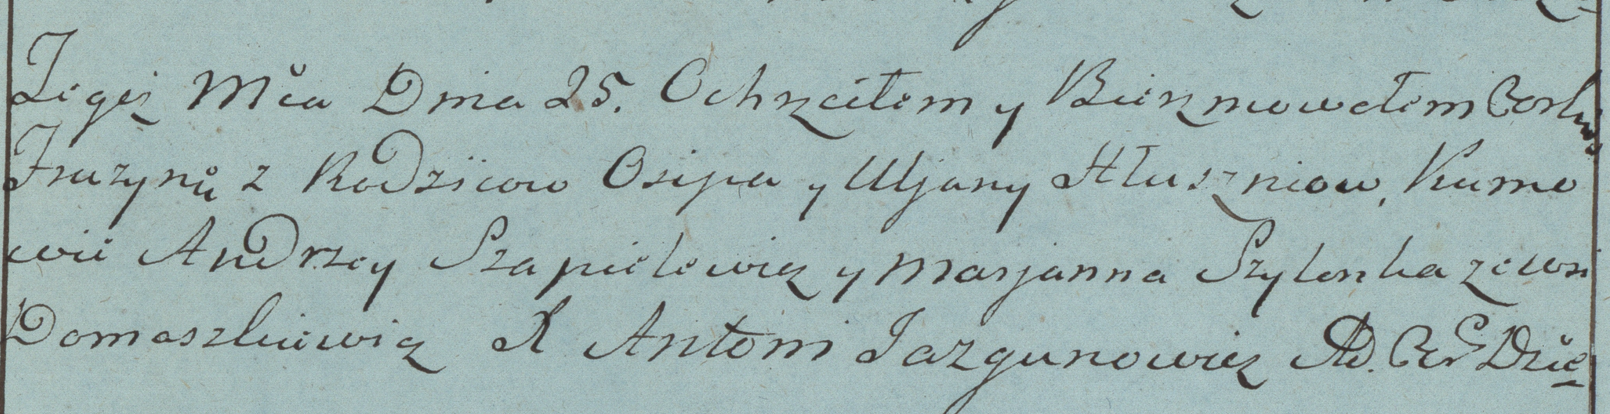 Tegoż Mca Dnia 25. Ochrzciłem y Bierzmowałem Corkę
Fruzynę z Rodzicow Osipa y Uljany Hłuszniow, Kumo
wie Andrzey Szapielewicz y Marjanna Szylonka ze wsi
Domaszkiewicz X Antoni Jazgunowicz Ad. Cer. Dzie